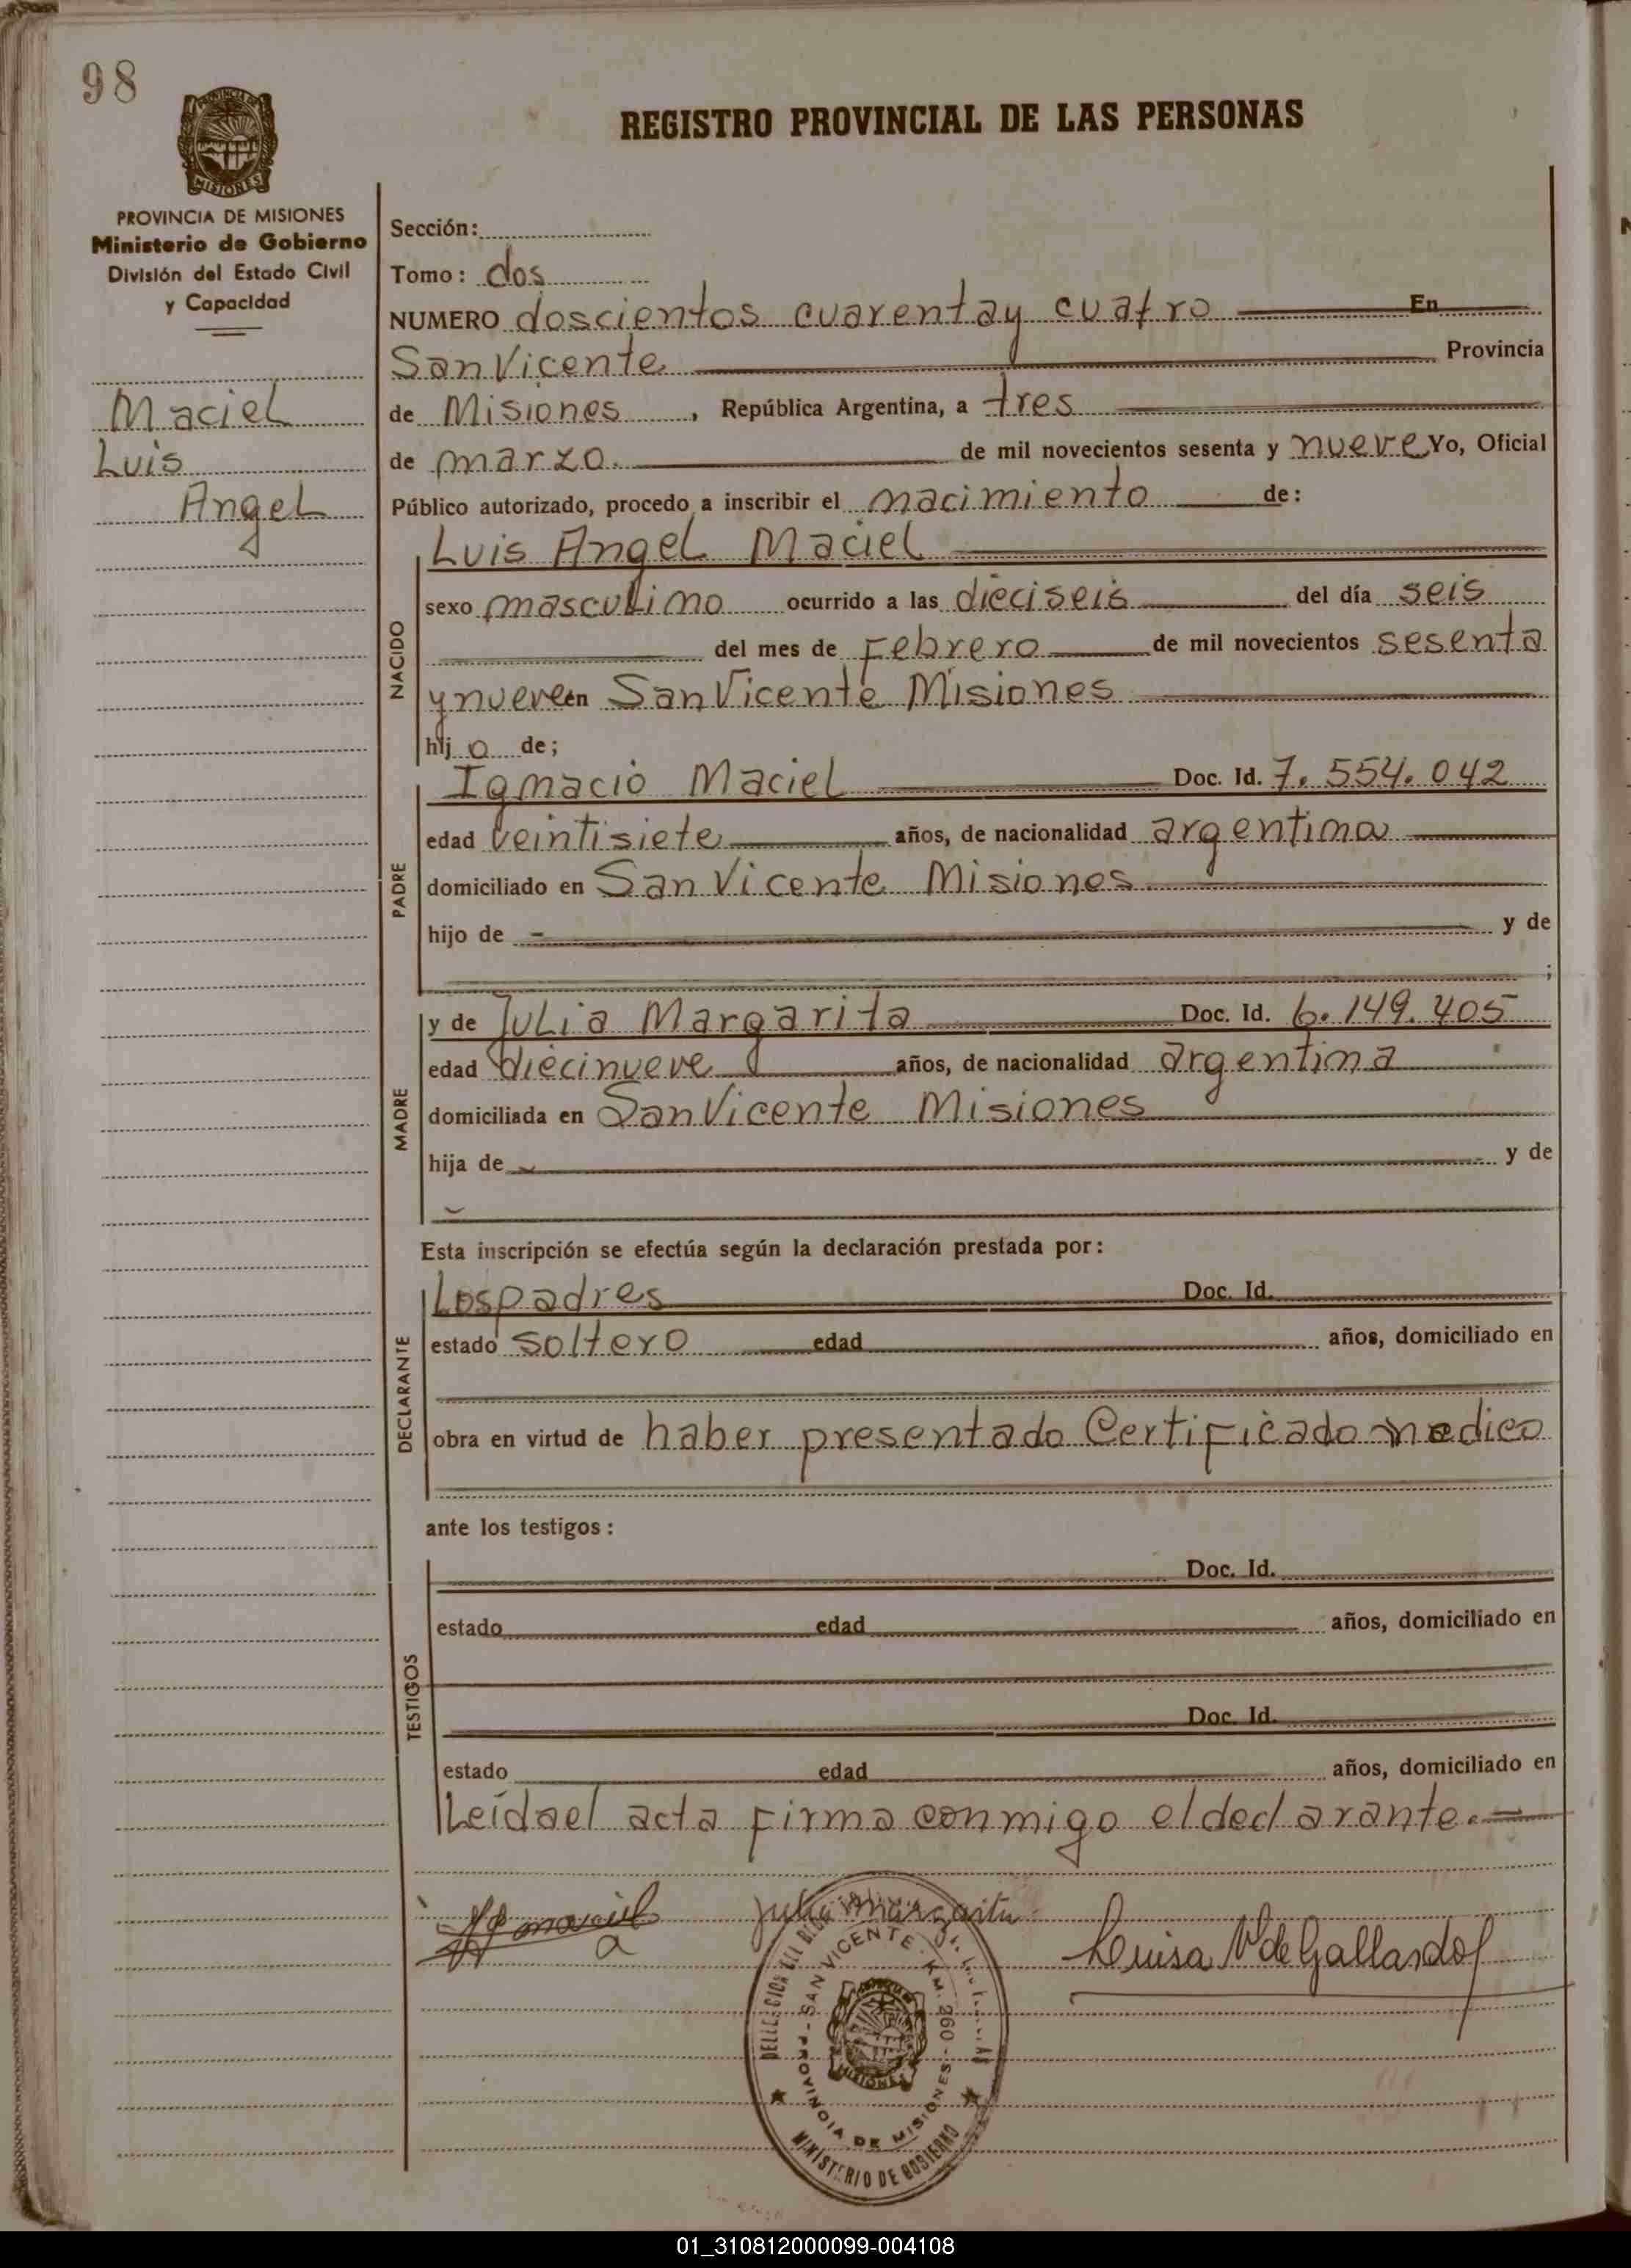 98
REGISTRO PROVINCIAL DE LAS PERSONAS
PROVINCIA DE MISIONES
Ministerio de Gobierno
División del Estado Civil
y Capacidad
Maciel
Luis
Angel
Sección:
Tomo: dos
NUMERO doscientos cuarentay cuatro En
San Vicente Provincia
de Misiones, República Argentina, a tres
de marzo. de mil novecientos sesenta y nueve Yo, Oficial
Público autorizado, procedo a inscribir el nacimiento de:
NACIDO
Luis Angel Maciel
sexo masculino ocurrido a las dieciseis del día seis
del mes de Febrero de mil novecientos sesenta
y nueve en San Vicente Misiones
hijo de;
PADRE
Ignacio Maciel Doc. Id. 7.554.042
edad veintisiete años, de nacionalidad argentina
domiciliado en San Vicente Misiones
hijo de - y de
;
MADRE
y de Julia Margarita Doc. Id. 6.149.405
edad diecinueve años, de nacionalidad argentina
domiciliada en San Vicente Misiones
hija de y de
Esta inscripción se efectúa según la declaración prestada por:
DECLARANTE
Los padres Doc. Id.
estado soltero edad años, domiciliado en
obra en virtud de haber presentado Certificado medico
ante los testigos:
TESTIGOS
Doc. Id.
estado edad años, domiciliado en
Doc. Id.
estado edad años, domiciliado en
Leída el acta firma conmigo el declarante.-
maciel Julia Margarita
a
Luisa V de Gallardo
SAN VICENTE - KM. 260 -
PROVINCIA DE MISIONES
MISIONES
MINISTERIO DE GOBIERNO
01_310812000099-004108